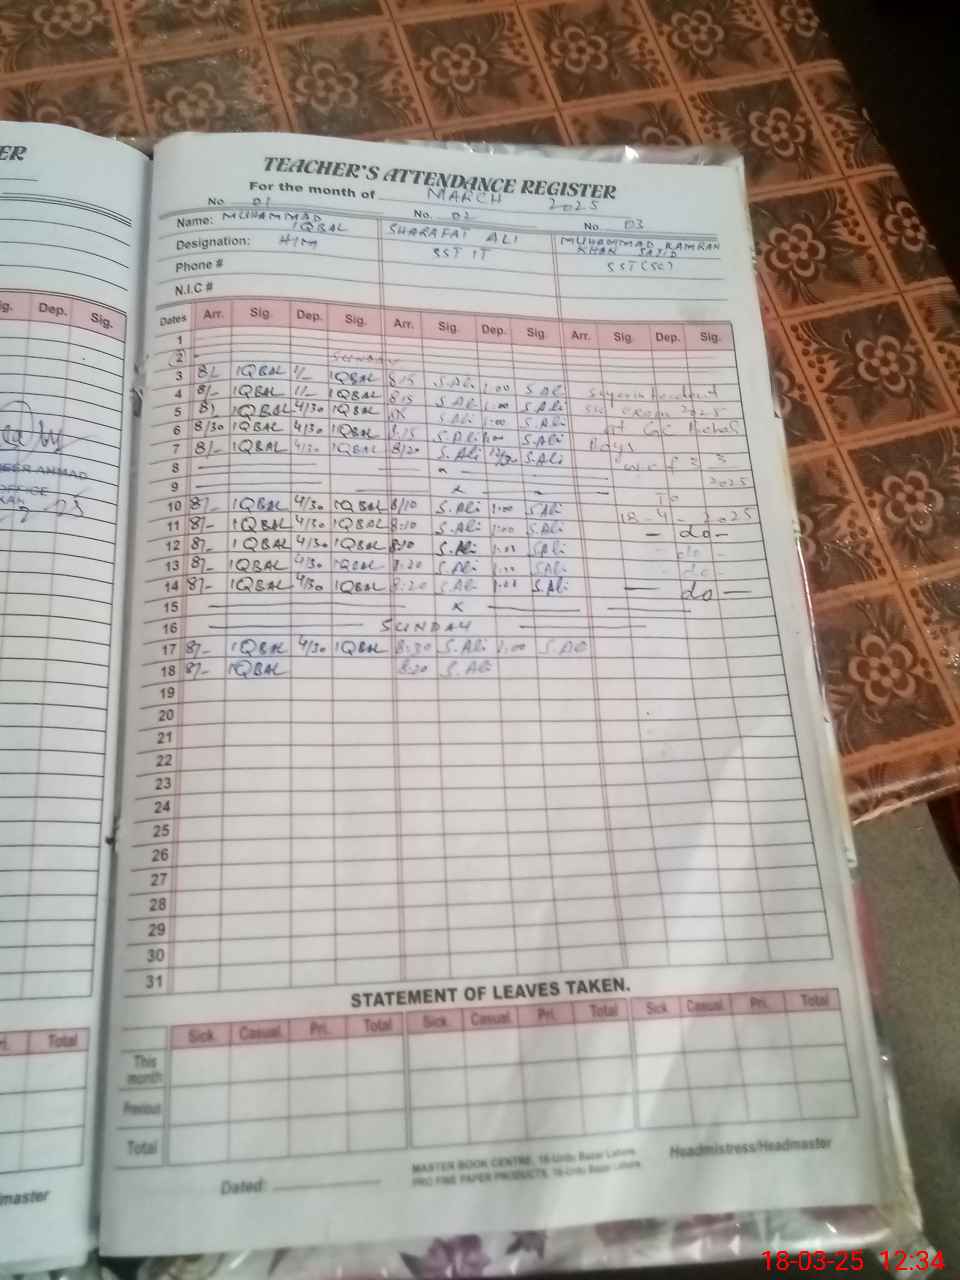 ER
TEACHER'S ATTENDANCE REGISTER
For the month of MARCH 2025
No. 01 No. 02 No. 03
Name: MUHAMMAD IQBAL SHARAFAT ALI MUHAMMAD KAMRAN KHAN SAJID
Designation: H/M SST IT SST(SC)
Phone #
N.I.C #
ig. Dep. Sig.
Dates Arr. Sig. Dep. Sig. Arr. Sig. Dep. Sig. Arr. Sig. Dep. Sig.
1
2 SUNDAY
3 8/- IQBAL 1/- IQBAL 8:15 S.Ali 1:00 S.Ali
4 8/- IQBAL 1/- IQBAL 8:15 S.Ali 1:00 S.Ali Superintendent
5 8/- IQBAL 4/30 IQBAL S.Ali 1:00 S.Ali 2025
6 8/30 IQBAL 4/30 IQBAL 8:15 S.Ali 1:00 S.Ali at
7 8/- IQBAL 4/30 IQBAL 8/20 S.Ali S.Ali Boys
8 w.e.f 3 3
9 x 2025
10 8/- IQBAL 4/30 IQBAL 8/10 S.Ali 1:00 S.Ali To
11 8/- IQBAL 4/30 IQBAL 8:10 S.Ali 1:00 S.Ali 18-4-2025
— do —
12 8/- IQBAL 4/30 IQBAL 8:10 S.Ali 1:00 S.Ali - do -
13 8/- IQBAL 4/30 IQBAL 8:20 S.Ali 1:00 S.Ali - do -
14 8/- IQBAL 4/30 IQBAL 8:20 S.Ali 1:00 S.Ali — do —
15 x
16 SUNDAY
17 8/- IQBAL 4/30 IQBAL 8:30 S.Ali 1:00 S.Ali
18 8/- IQBAL 8:20 S.Ali
19
20
21
22
23
24
25
26
27
28
29
30
31
STATEMENT OF LEAVES TAKEN.
Sick Casual Pri. Total Sick Casual Pri. Total Sick Casual Pri. Total
This month
Previous
Total
ri. Total
MASTER BOOK CENTRE, 16-Urdu Bazar Lahore.
PRO FINE PAPER PRODUCTS, 16-Urdu Bazar Lahore.
Headmistress/Headmaster
Dated:
master
18-03-25 12:34